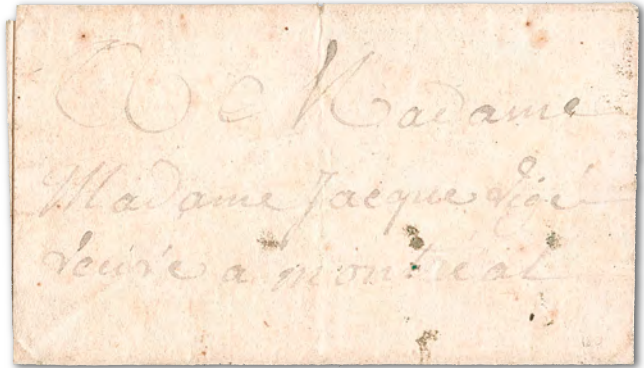 A Madame
Madame Jacque Vigé
veuve a montréal